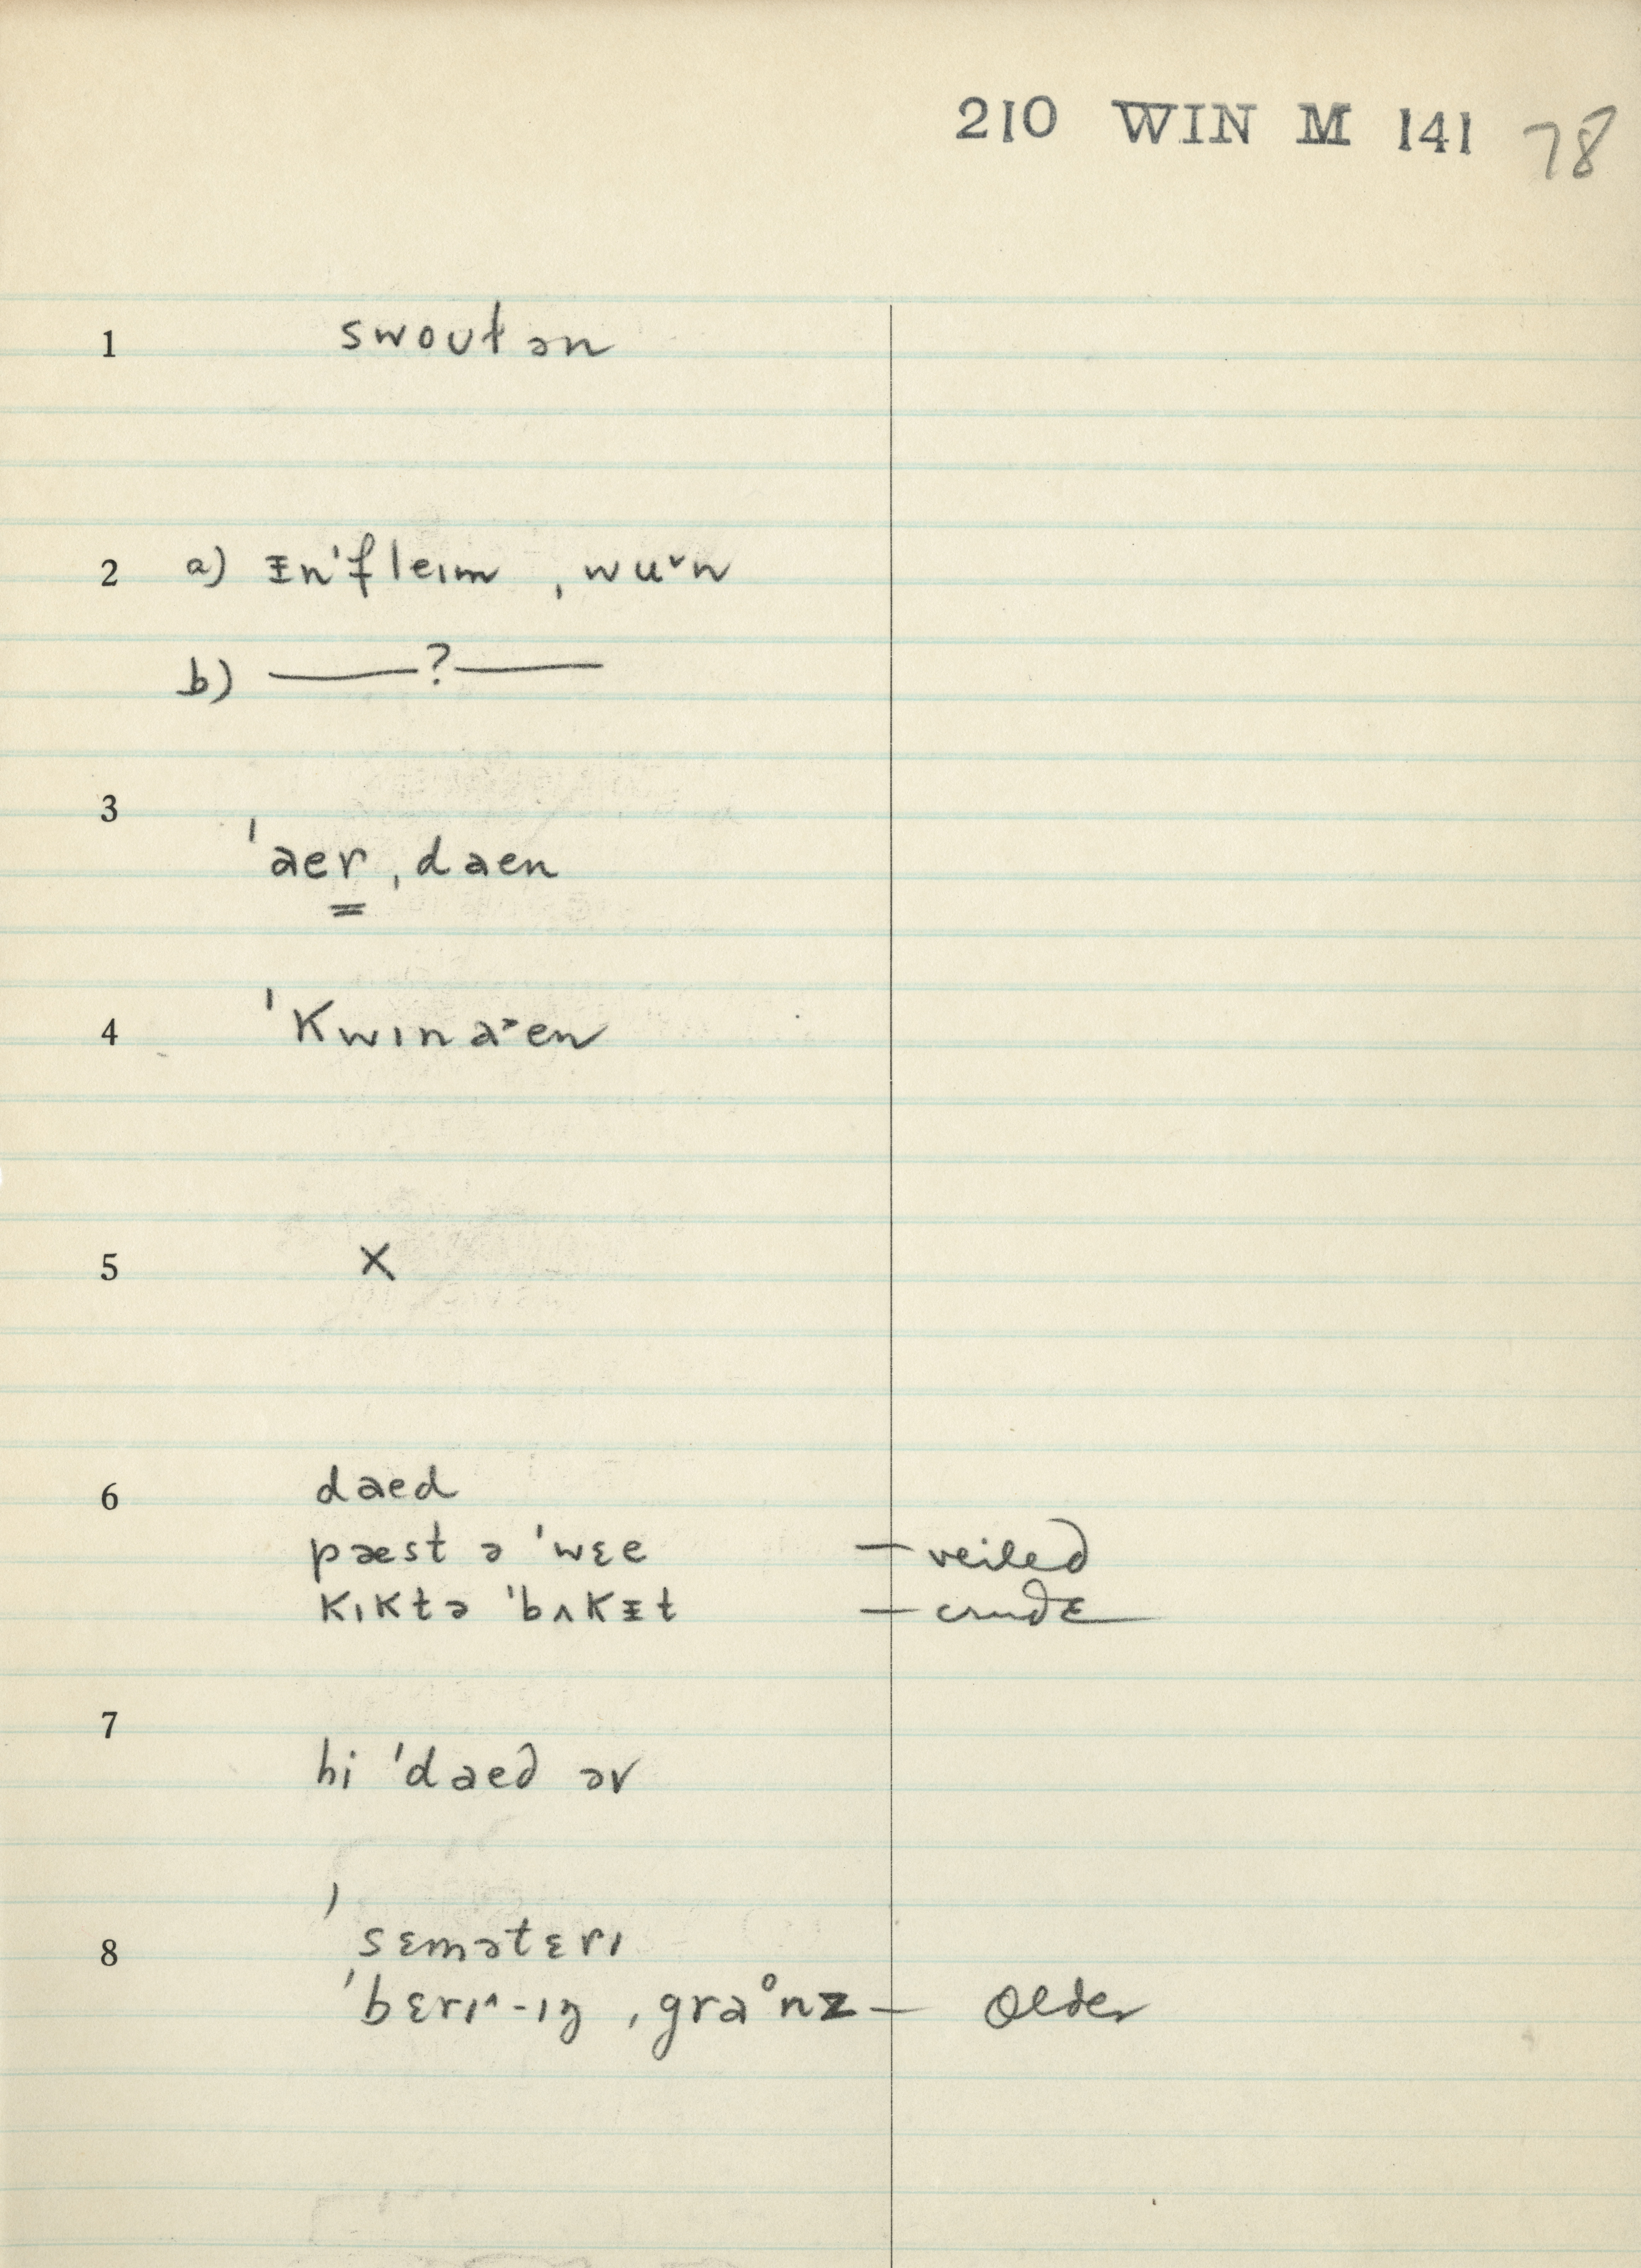 210 WIN M 141 78
1 swoutən
2 a) ᵻn'fleım ˌwuᵛn
b) ——?——
3 'aer ˌdaen
4 'Kwınə˃en
5 X
6 daed
pæst ə 'wɛe — veiled
kıktə 'bʌkᵻt — crude
7 hi 'daed əv
8 'sɛmətɛrı
'bɛrı^-ıŋ ˌgraᵒnz — older